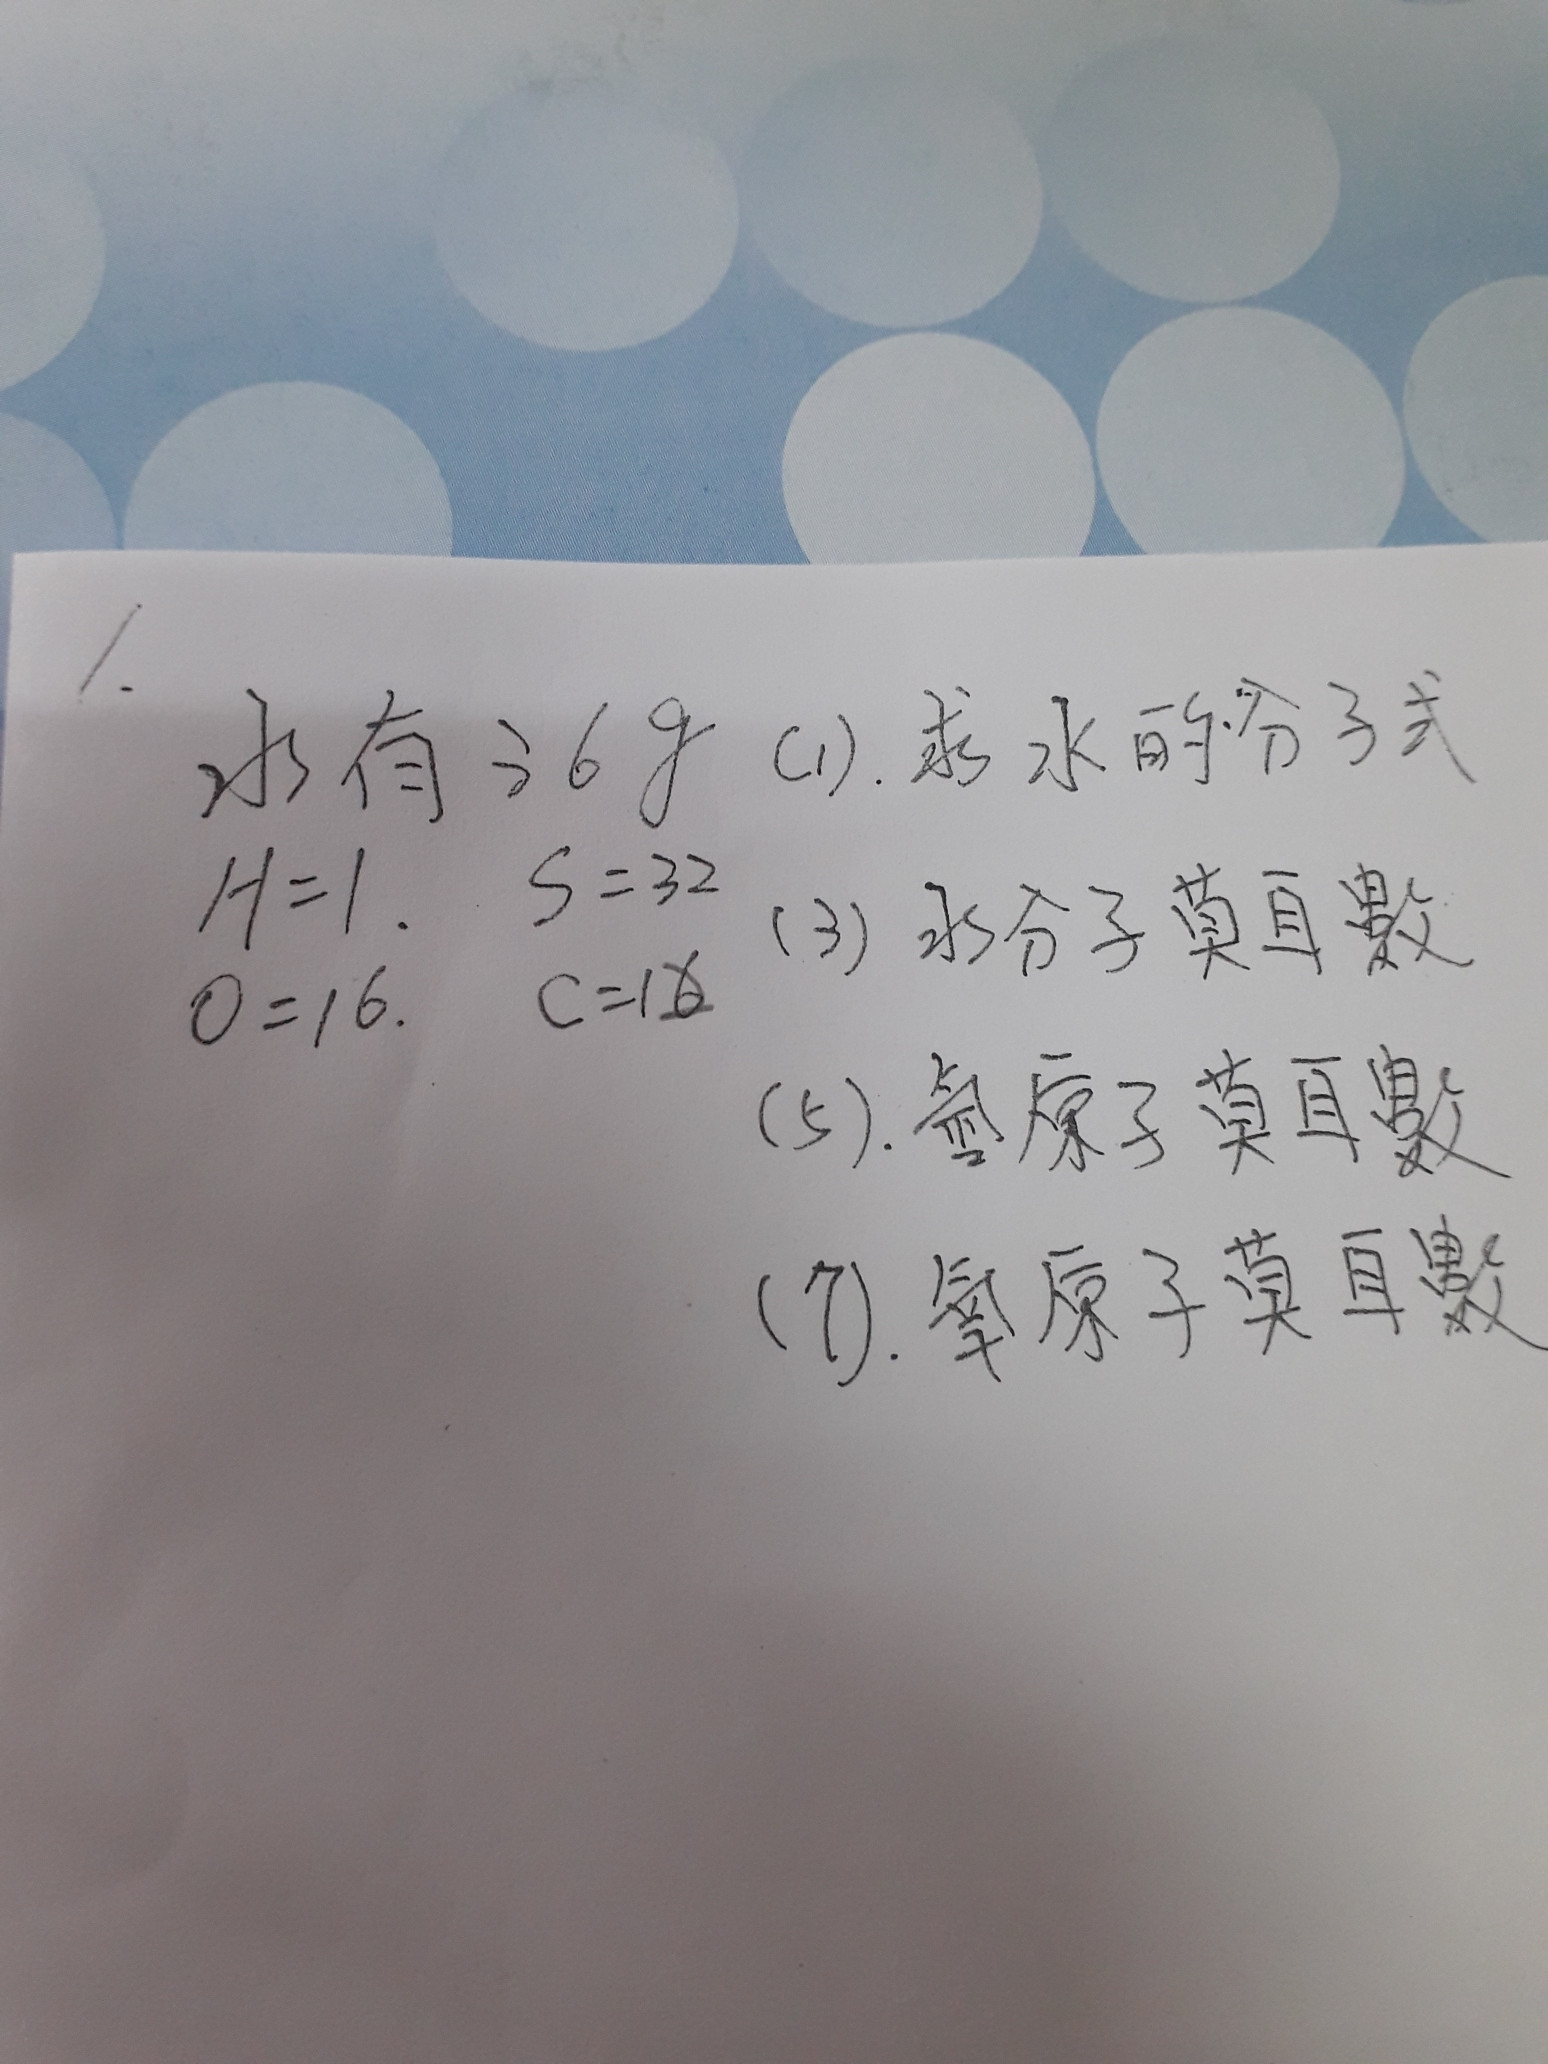 1.
水有36g (1). 求水的分子式
H=1. S=32
(3) 水分子莫耳數
O=16. C=12
(5). 氫原子莫耳數
(7). 氧原子莫耳數